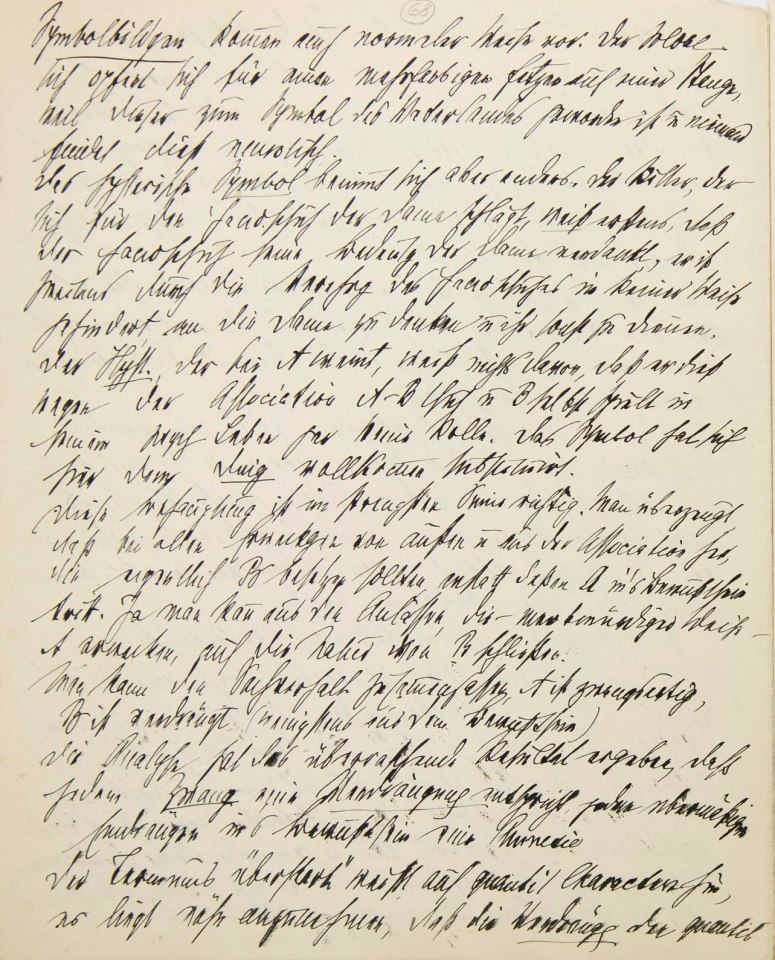 68
Symbolbildgen kommen auch normaler Weise vor. Der Soldat
sich opfert sich für einen mehrfarbigen Fetzen auf einer Stange,
weil dieser zum Symbol des Vaterlandes geworden ist u niemand
findet dieß neurotisch.
Das hysterische Symbol benimmt sich aber anders. Der Ritter, der
sich für den Handschuh der Dame schlägt, weiß erstens, daß
der Handschuh seine Bedeutg der Dame verdankt, er ist
zweitens durch die Verehrg des Handschuhes in keiner Weise
gehindert, an die Dame zu denken u ihr sonst zu dienen.
Der Hyst., der bei A weint, weiß nichts davon, daß er dieß
wegen der Association A-B thut u B selbst spielt in
seinem psych Leben gar keine Rolle. Das Symbol hat sich
hier dem Ding vollkommen substituirt.
Diese Behauptung ist im strengsten Sinne richtig. Man überzeugt
daß bei allen Erweckgen von außen u aus der Association her,
die eigentlich B besetzen sollten, anstatt dessen A in's Bewußtsein
tritt. Ja man kann aus den Anlässen, die – merkwürdiger Weise –
A erwecken, auf die Natur von B schließen.
Man kann den Sachverhalt zusammenfassen, A ist zwangsartig,
B ist verdrängt (wenigstens aus dem Bewußtsein)
Die Analyse hat das überraschende Resultat ergeben, daß
jedem Zwang eine Verdrängung entspricht jedem übermäßigen
Eindrängen ins Bewußtsein eine Amnesie
Der Terminus „überstark" weist auf quantit Charactere hin,
es liegt nahe anzunehmen, daß die Verdrängg den quantit